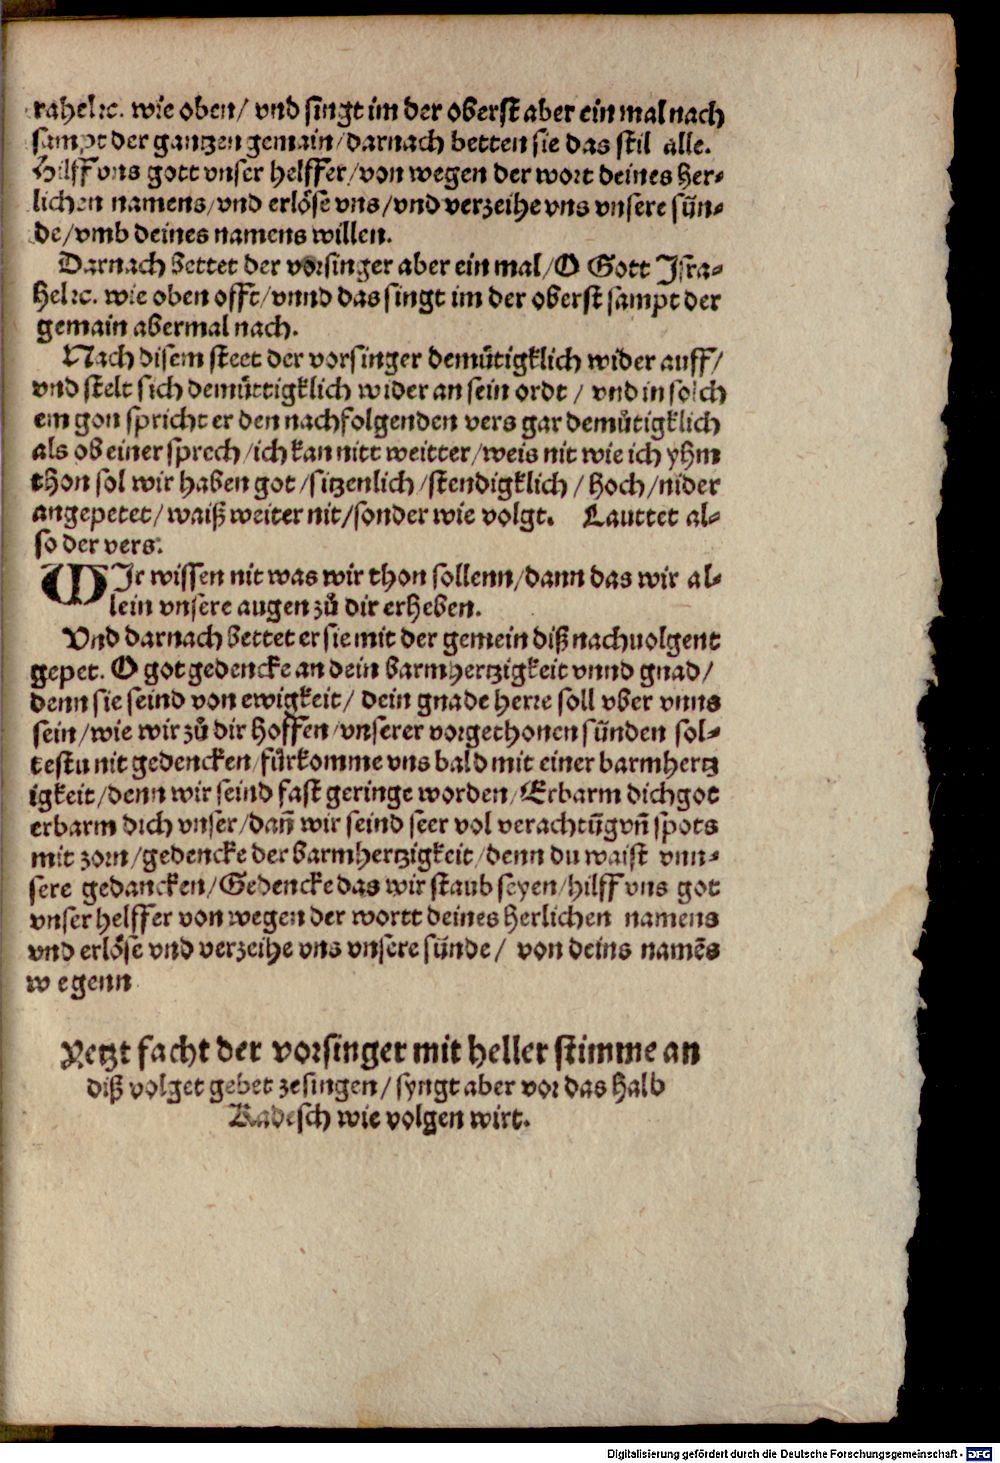 rahel ꝛc. wie oben/ vnd singt im der oberst aber ein mal nach
sampt der ganzen gemain/darnach betten sie das stil alle.
Hilff vns gott vnser helffer/von wegen der wort deines her⸗
lichen namens/vnd erlöse vns/vnd verzeihe vns vnsere sün⸗
de/vmb deines namens willen.
Darnach bettet der vorsinger aber ein mal/O Gott Jsra⸗
hel ꝛc. wie oben offt/vnnd das singt im der oberst sampt der
gemain abermal nach.
Nach disem steet der vorsinger demuͤtigklich wider auff/
vnd stelt sich demuͤttigklich wider an sein ordt / vnd in solch
em gon spricht er den nachfolgenden vers gar demuͤtigklich
als ob einer sprech/ich kan nitt weitter/weis nit wie ich yhm
thon sol wir haben got/sitzenlich/stendigklich / hoch/nider
angepetet/waiß weiter nit/sonder wie volgt. Lauttet al⸗
so der vers.
WJr wissen nit was wir thon sollenn/dann das wir al⸗
lein vnsere augen zuͦ dir erheben.
Vnd darnach bettet er sie mit der gemein diß nachuolgent
gepet. O got gedencke an dein barmhertzigkeit vnnd gnad/
denn sie seind von ewigkeit/ dein gnade herre soll vber vnns
sein/wie wir zuͦ dir hoffen/vnserer vorgethonen sünden sol⸗
testu nit gedencken/fürkomme vns bald mit einer barmhertz
igkeit/denn wir seind fast geringe worden/Erbarm dich got
erbarm dich vnser/dañ wir seind seer vol verachtũg vñ spots
mit zorn/gedencke der barmhertzigkeit/denn du waist vnn⸗
sere gedancken/Gedencke das wir staub seyen/hilff vns got
vnser helffer von wegen der wortt deines herlichen namens
vnd erlöse vnd verzeihe vns vnsere sünde/ von deins namẽs
w egenn
Yetzt facht der vorsinger mit heller stimme an
diß volget gebet zesingen/ syngt aber vor das halb
Kadesch wie volgen wirt.
Digitalisierung gefördert durch die Deutsche Forschungsgemeinschaft - DFG